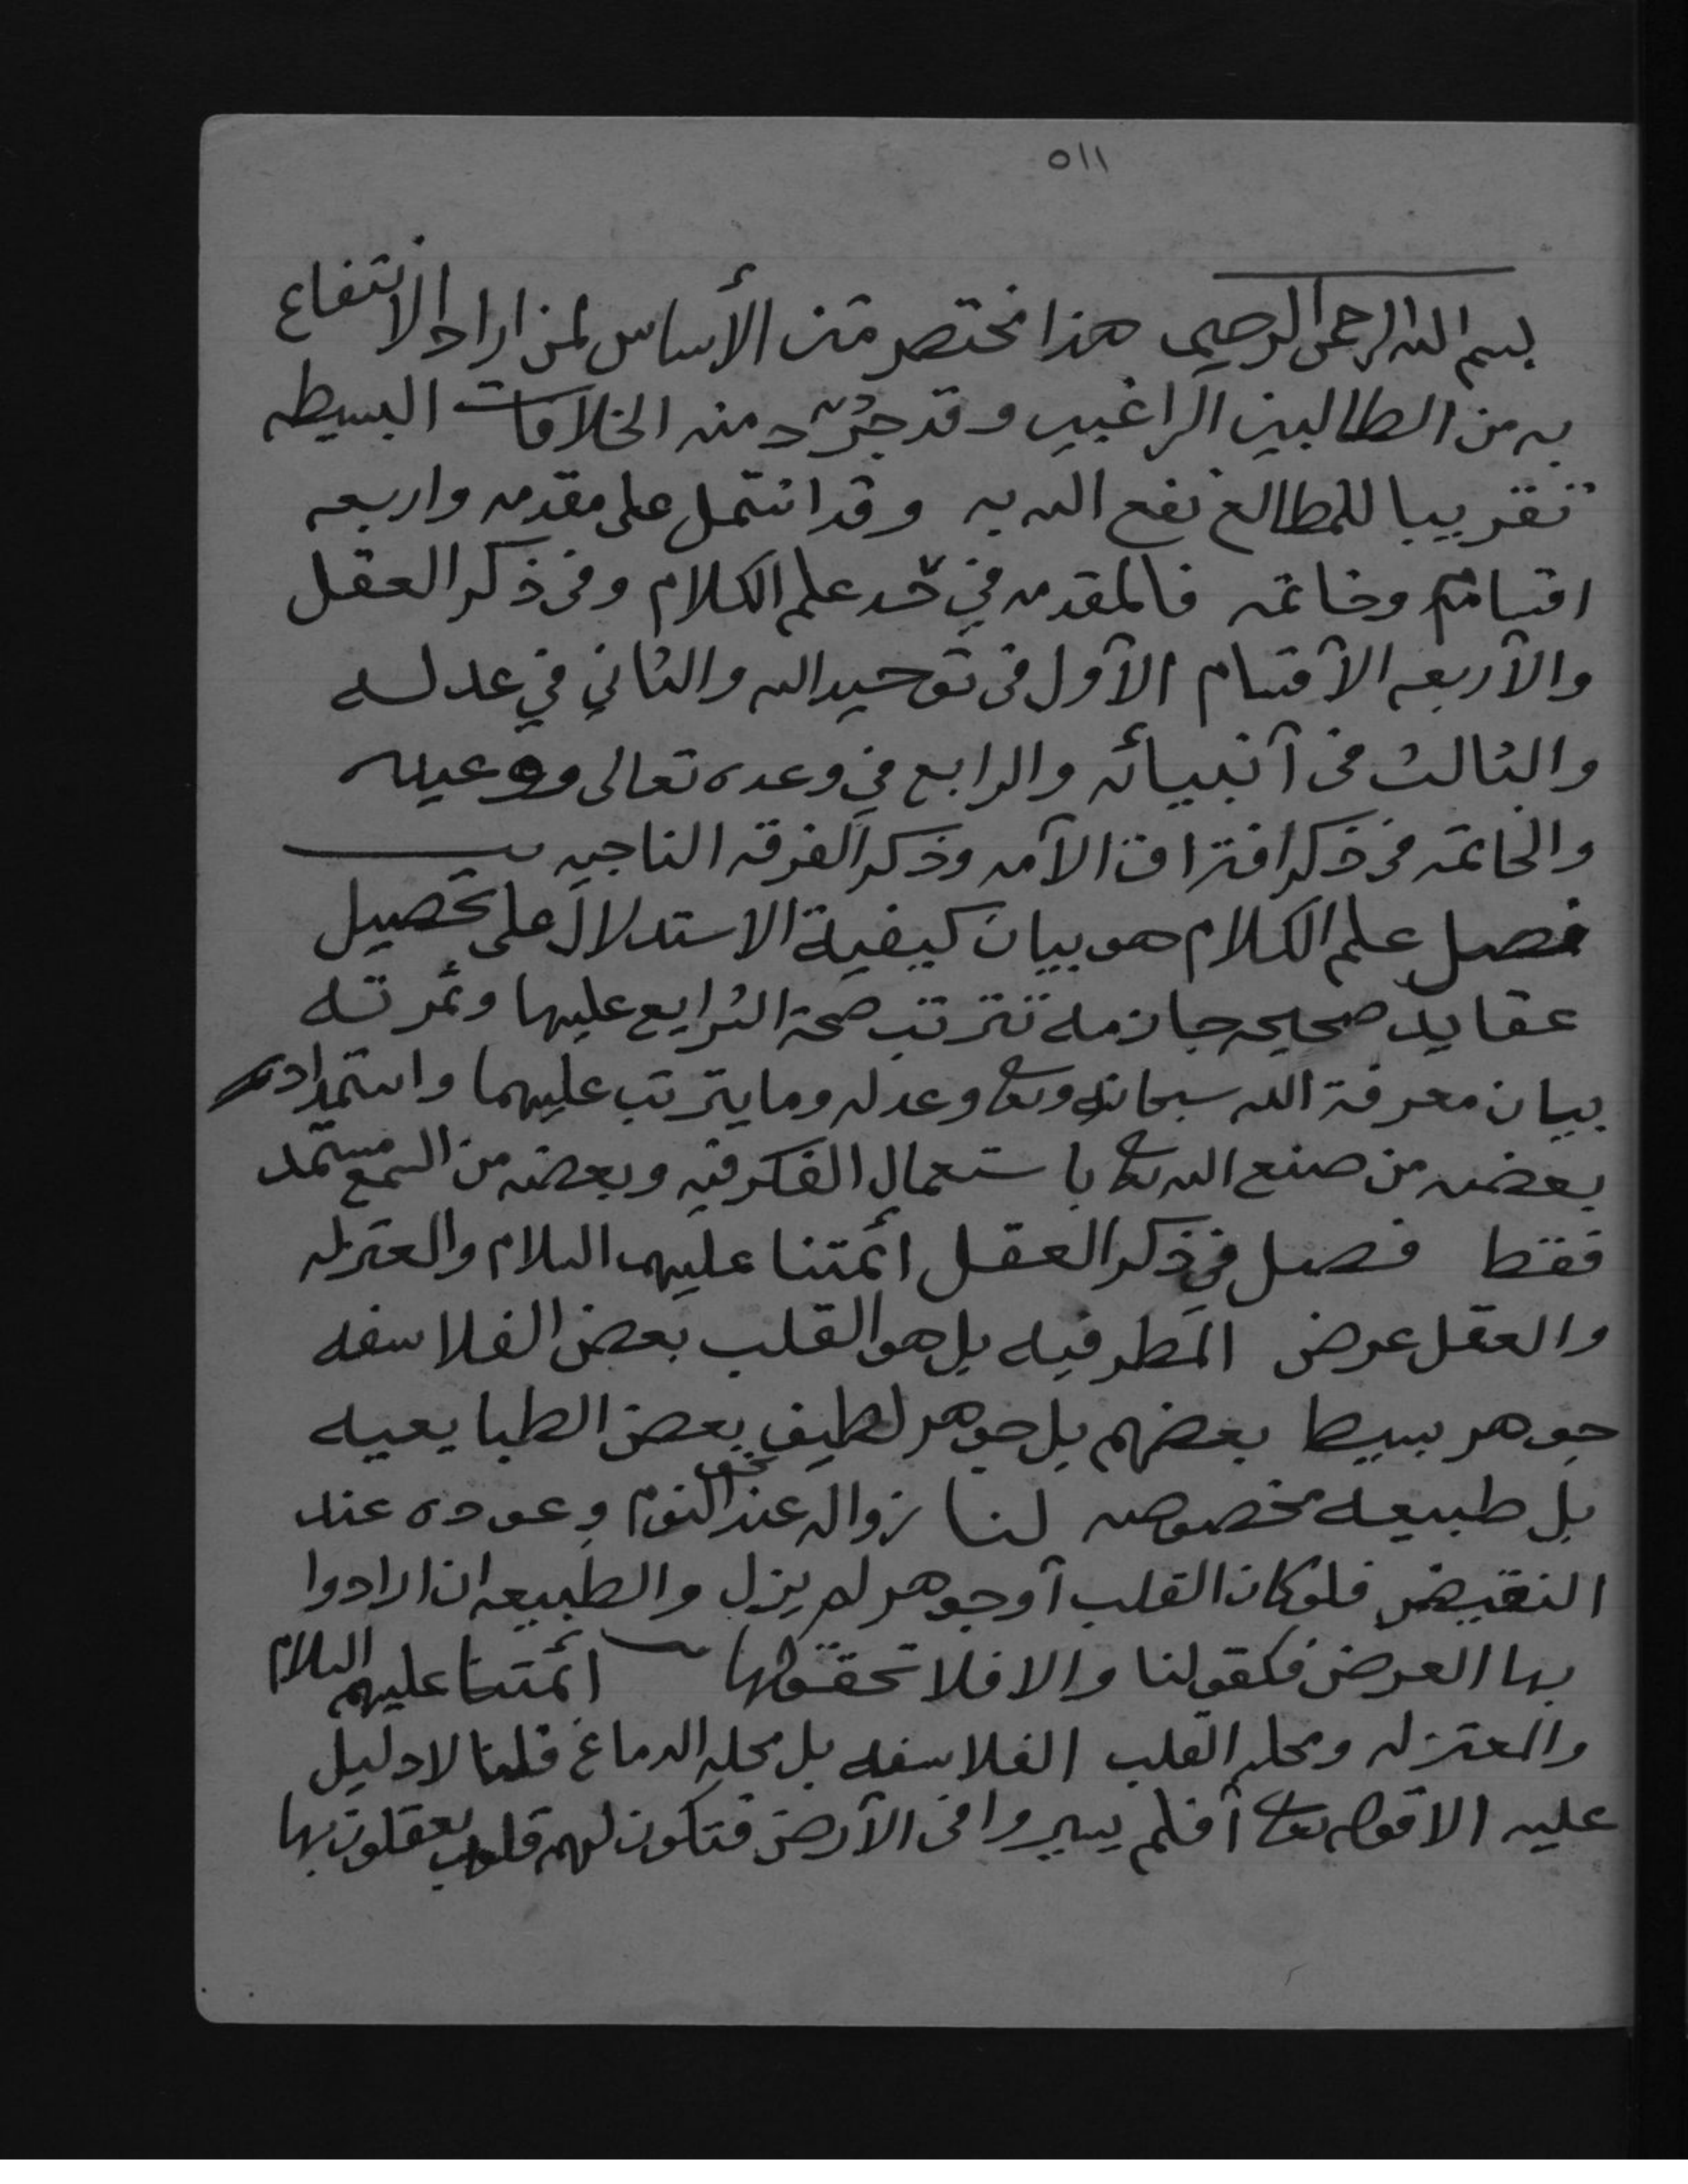 ٥١١
بسم الله الرحمن الرحيم هذا مختصر متن الأساس لمن اراد الانتفاع
به من الطالبين الراغبين وقد جرد منه الخلافات البسيطه
تقريبا للمطالع نفع الله به وقد اشتمل على مقدمه واربعه
اقسام وخاتمه فالمقدمه في حد علم الكلام وفى ذكر العقل
والأربعه الأقسام الأول فى توحيد الله والثاني في عدله
والثالث فى أنبيائه والرابع في وعده تعالى ووعيده
والخاتمه فى ذكر افتراق الأمه وذكر الفرقه الناجيه
فصل علم الكلام هو بيان كيفية الاستدلال على تحصيل
عقايد صحيحه جازمه تترتب صحة الشرايع عليها وثمرته
بيان معرفة الله سبحانه وتعالى وعدله وما يترتب عليهما واستمداده
بعضه من صنع الله تعالى باستعمال الفكر فيه وبعضه من السمع مستمد
فقط فصل في ذكر العقل ائمتنا عليهم السلام والمعتزله
والعقل عرض المطرفيه بل هو القلب بعض الفلاسفه
جوهر بسيط بعضهم بل جوهر لطيف بعض الطبايعيه
بل طبيعه مخصوصه لنا زواله عند نحو النوم وعوده عند
النقيض فلو كان القلب أو جوهر لم يزل والطبيعه ان ارادوا
بها العرض فكقولنا والا فلا تحقق لها ائمتنا عليهم السلام
والمعتزله ومحله القلب الفلاسفه بل محله الدماغ قلنا لا دليل
عليه الا قوله تعالى أفلم يسيروا فى الأرض فتكون لهم قلوب يعقلون بها